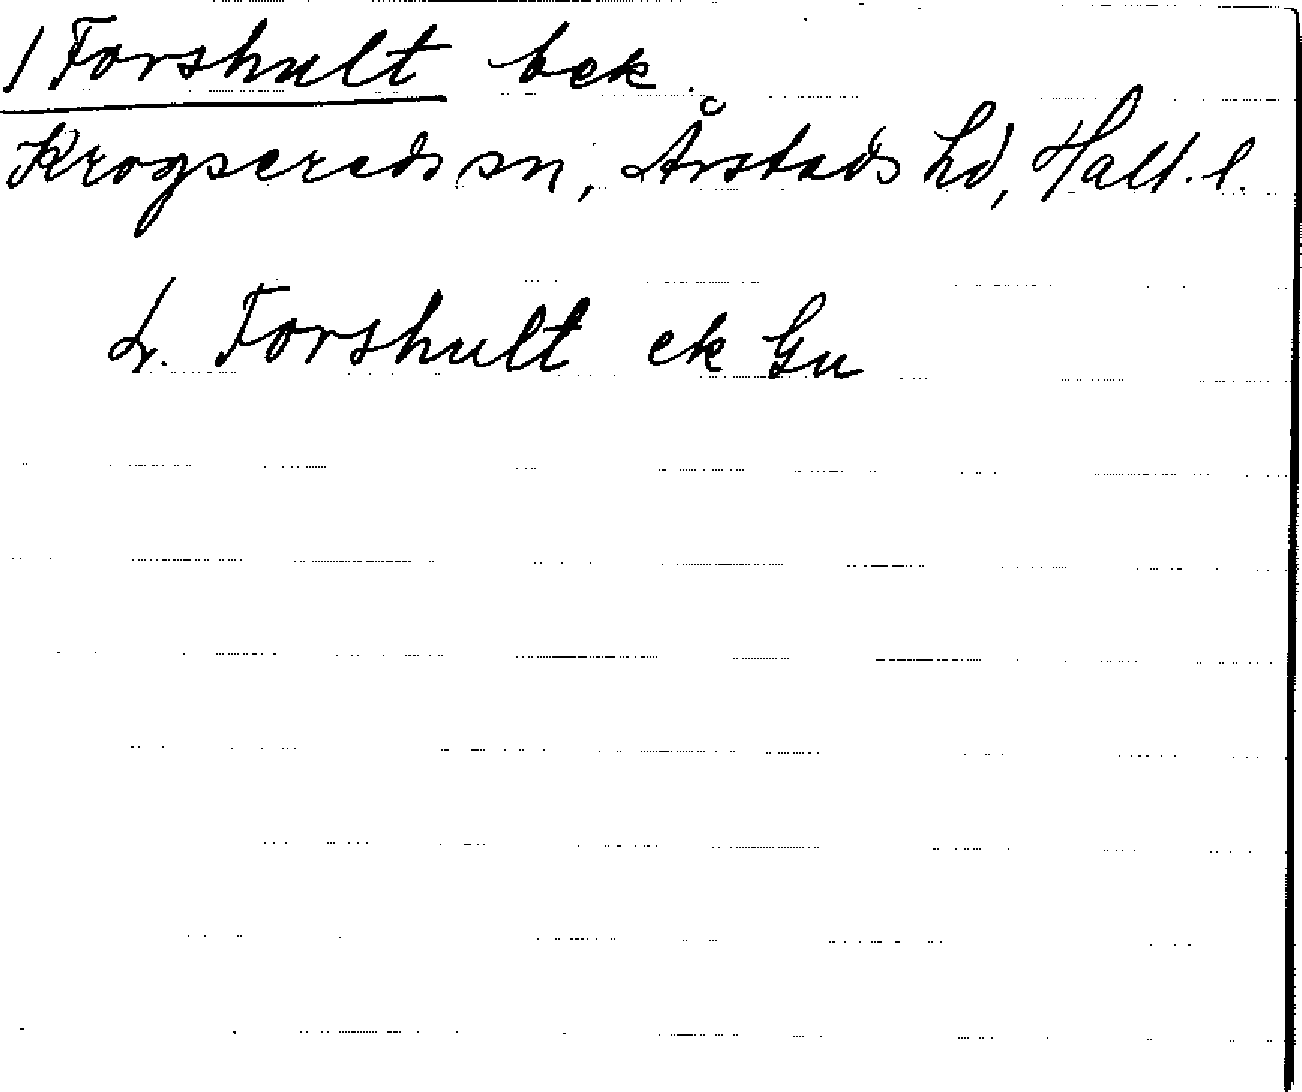 1 Forshult bek.
Krogsereds sn, Årstads hd, Hall. l.
L. Forshult ek Gu